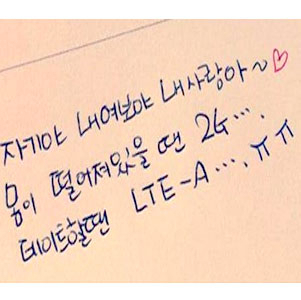 자기야 내여보야 내사랑아~♡
몸이 떨어져있을 땐 2G···.
데이트할땐 LTE-A···. ㅠㅠ